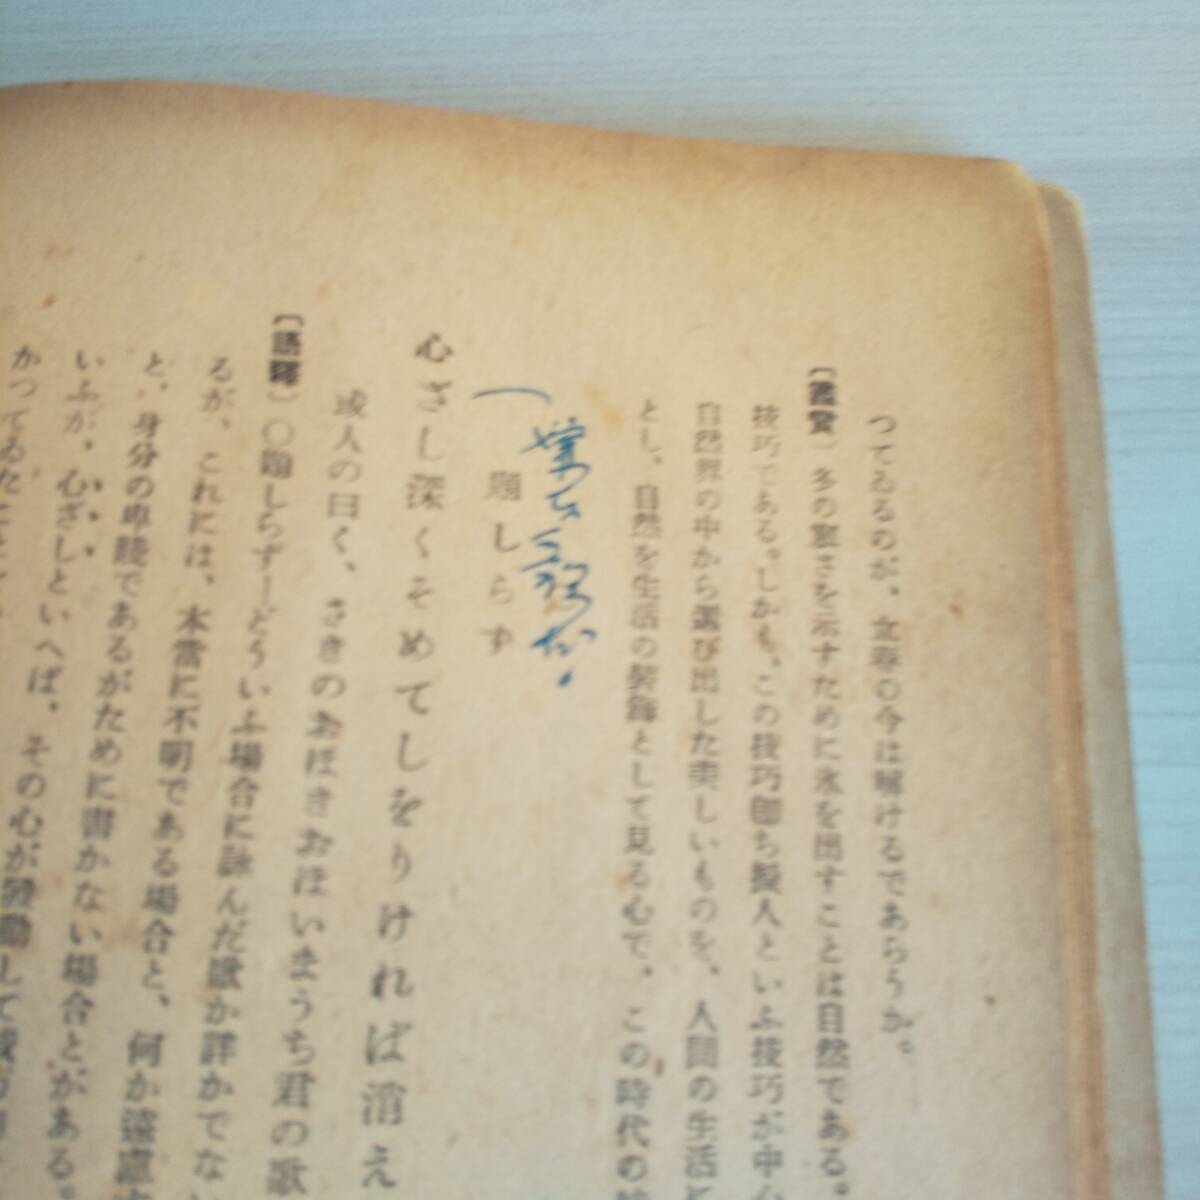 つてゐるのが、立春の今は解けるであらうか。
〔鑑賞〕冬の寒さを示すために氷を出すことは自然である。
技巧である。しかも、この技巧卽ち擬人といふ技巧が中心
自然界の中から選び出した美しいものを、人間の生活に
とし、自然を生活の裝飾として見る心で、この時代の
題しらず
心ざし深くそめてしをりければ消え
或人の曰く、さきのおほきおほいまうち君の歌
〔語釋〕○題しらず―どういふ場合に詠んだ歌か詳かでない
るが、これには、本當に不明である場合と、何か遠慮
と、身分の卑賤であるがために書かない場合とがある。
いふが、心ざしといへば、その心が發動して
かつてゐたことを